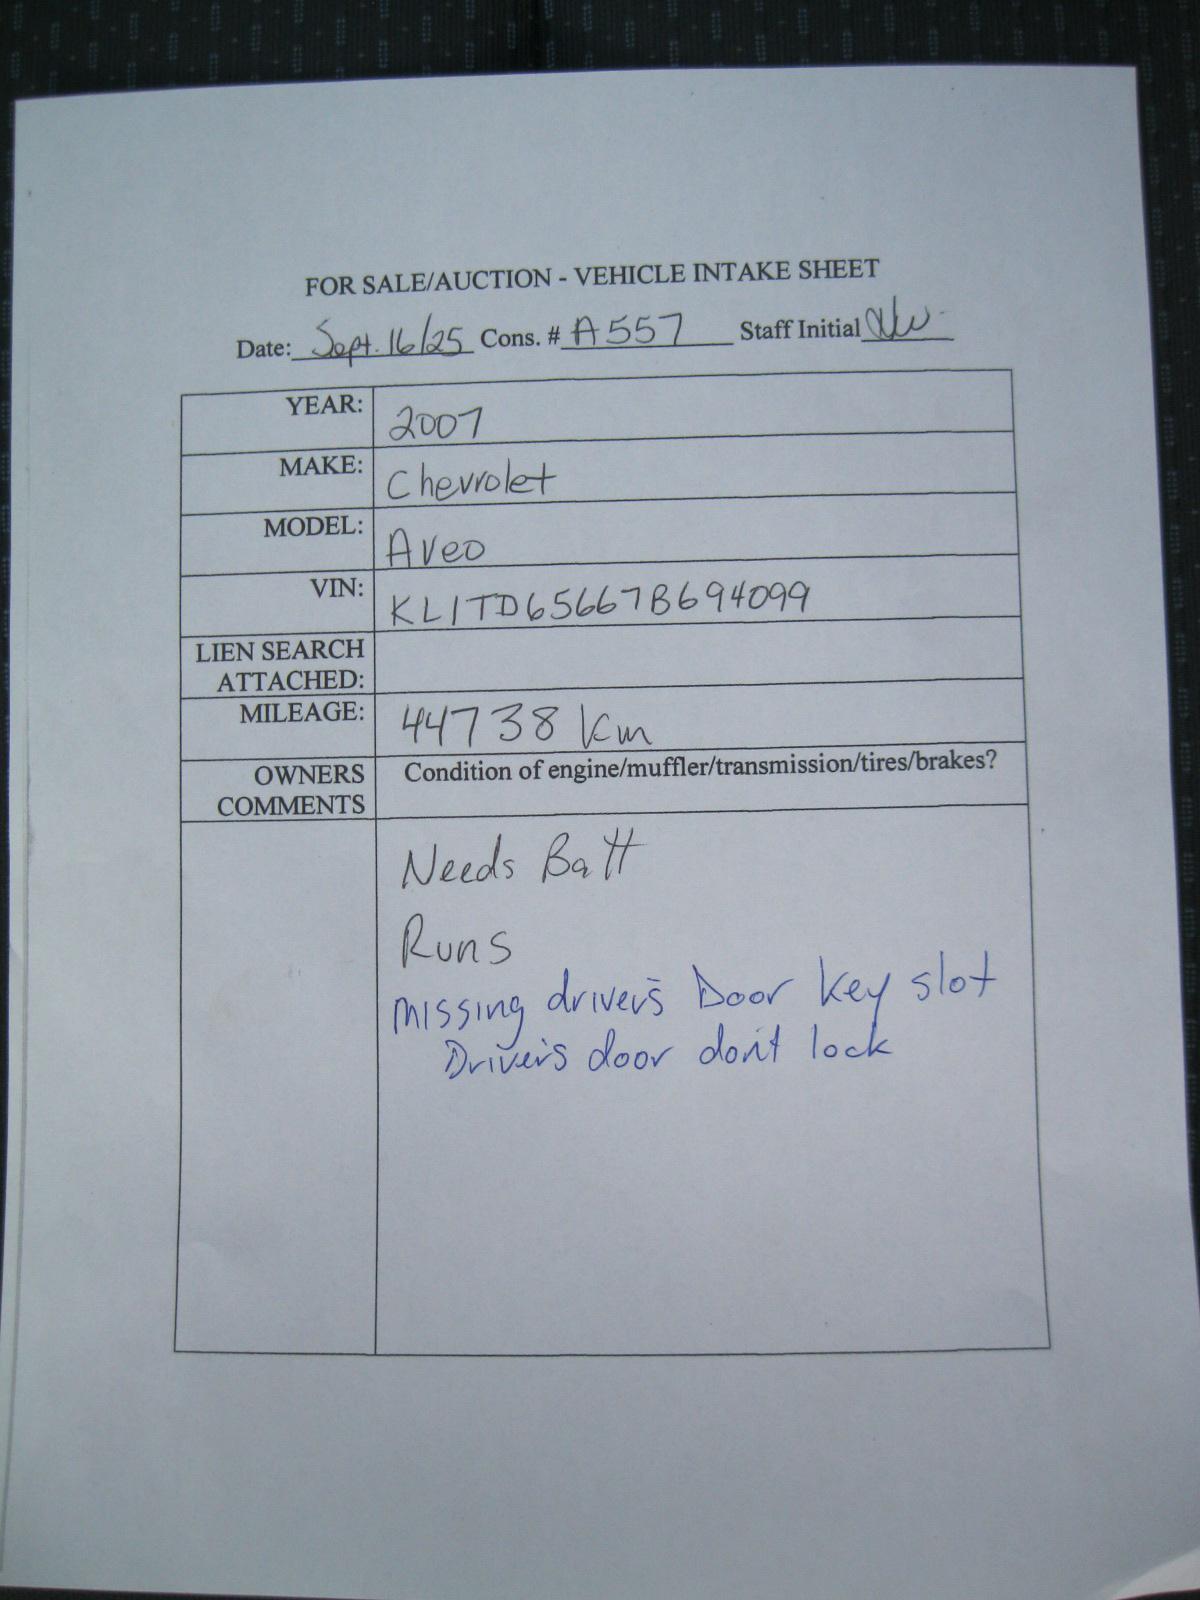 FOR SALE/AUCTION - VEHICLE INTAKE SHEET
Date: Sept. 16/25 Cons. # A557 Staff Initial
YEAR: 2007
MAKE: Chevrolet
MODEL: Aveo
VIN: KL1TD65667B694099
LIEN SEARCH
ATTACHED:
MILEAGE: 44738 km
OWNERS
COMMENTS
Condition of engine/muffler/transmission/tires/brakes?
Needs Batt
Runs
missing driver's Door key slot
Driver's door don't lock